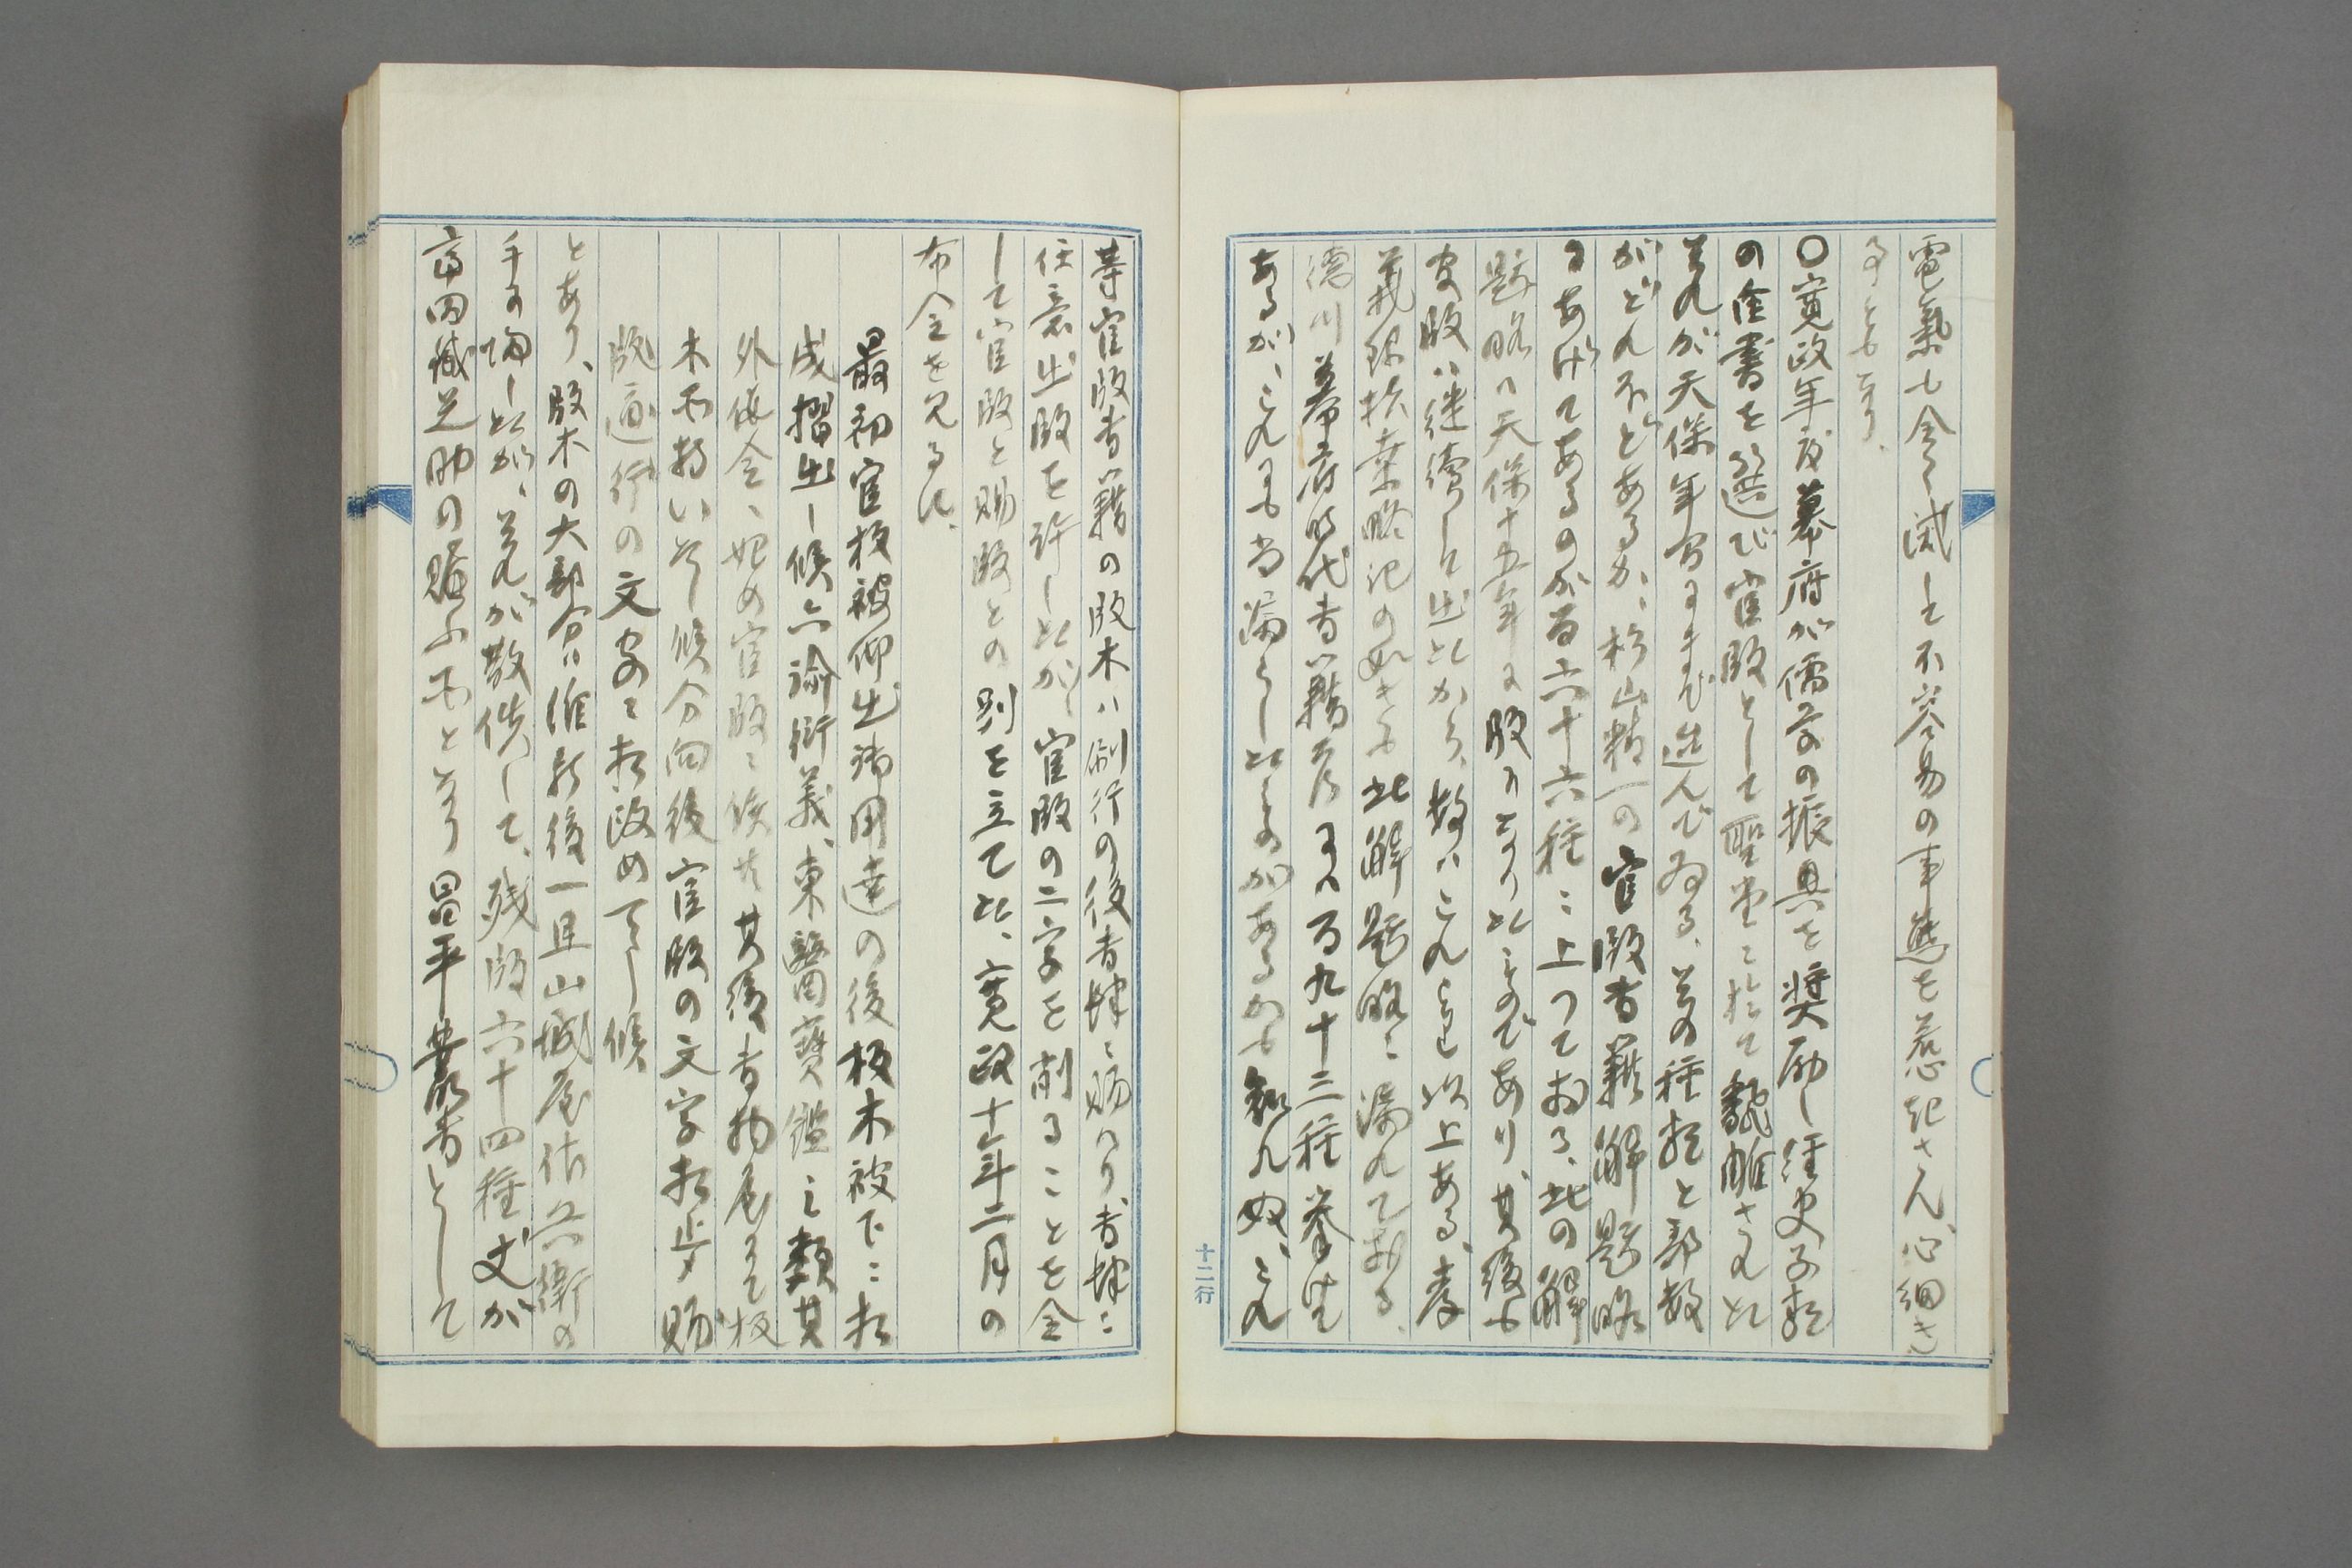 電氣も全く滅して不容易の事態を惹起さん、心細き
事ともなり、
〇寛政年度幕府が儒学の振興を奨励し経史子類
の全書を選び官版として聖堂に於て翻雕された
それが天保年間まで進んでゐる、其の種類と部数
がどれ不どあるか、杉山精一の官版書籍解題略
にあげてあるのが百六十六種に上つておる、此の解
題略は天保十五年に版になつたものであり、其後も
官版は継続して出たから、数はこれより以上ある、孝
義録抄案略記の如きも此解題略に漏れておる、
徳川幕府時代書籍考には百九十三種挙げて
あるが、これにも尚漏らしたものがあるかも知れぬ、これ
等官版書籍の版木は刷行の後書肆に賜はり、書肆に
任意出版を許したが、官版の二字を削ることを令
して官版と賜版との別を立てた、寛政十一年二月の
布令を見るに、
最初官板被仰出御用達の後板木被下に相
成摺出し候六諭衍義、東醫寶鑑之類其
外仮令、始め官版に候共其後書物屋にて板
木不持いたし候分向後官版の文字相止メ賜
版通行の文字に相改め可し候
とあり、版木の大部分は維新後一旦山城屋佐兵衛の
手に帰したが、それが散佚して、残版六十四種丈が
高田蔵之助の購ふ所となり昌平叢書として